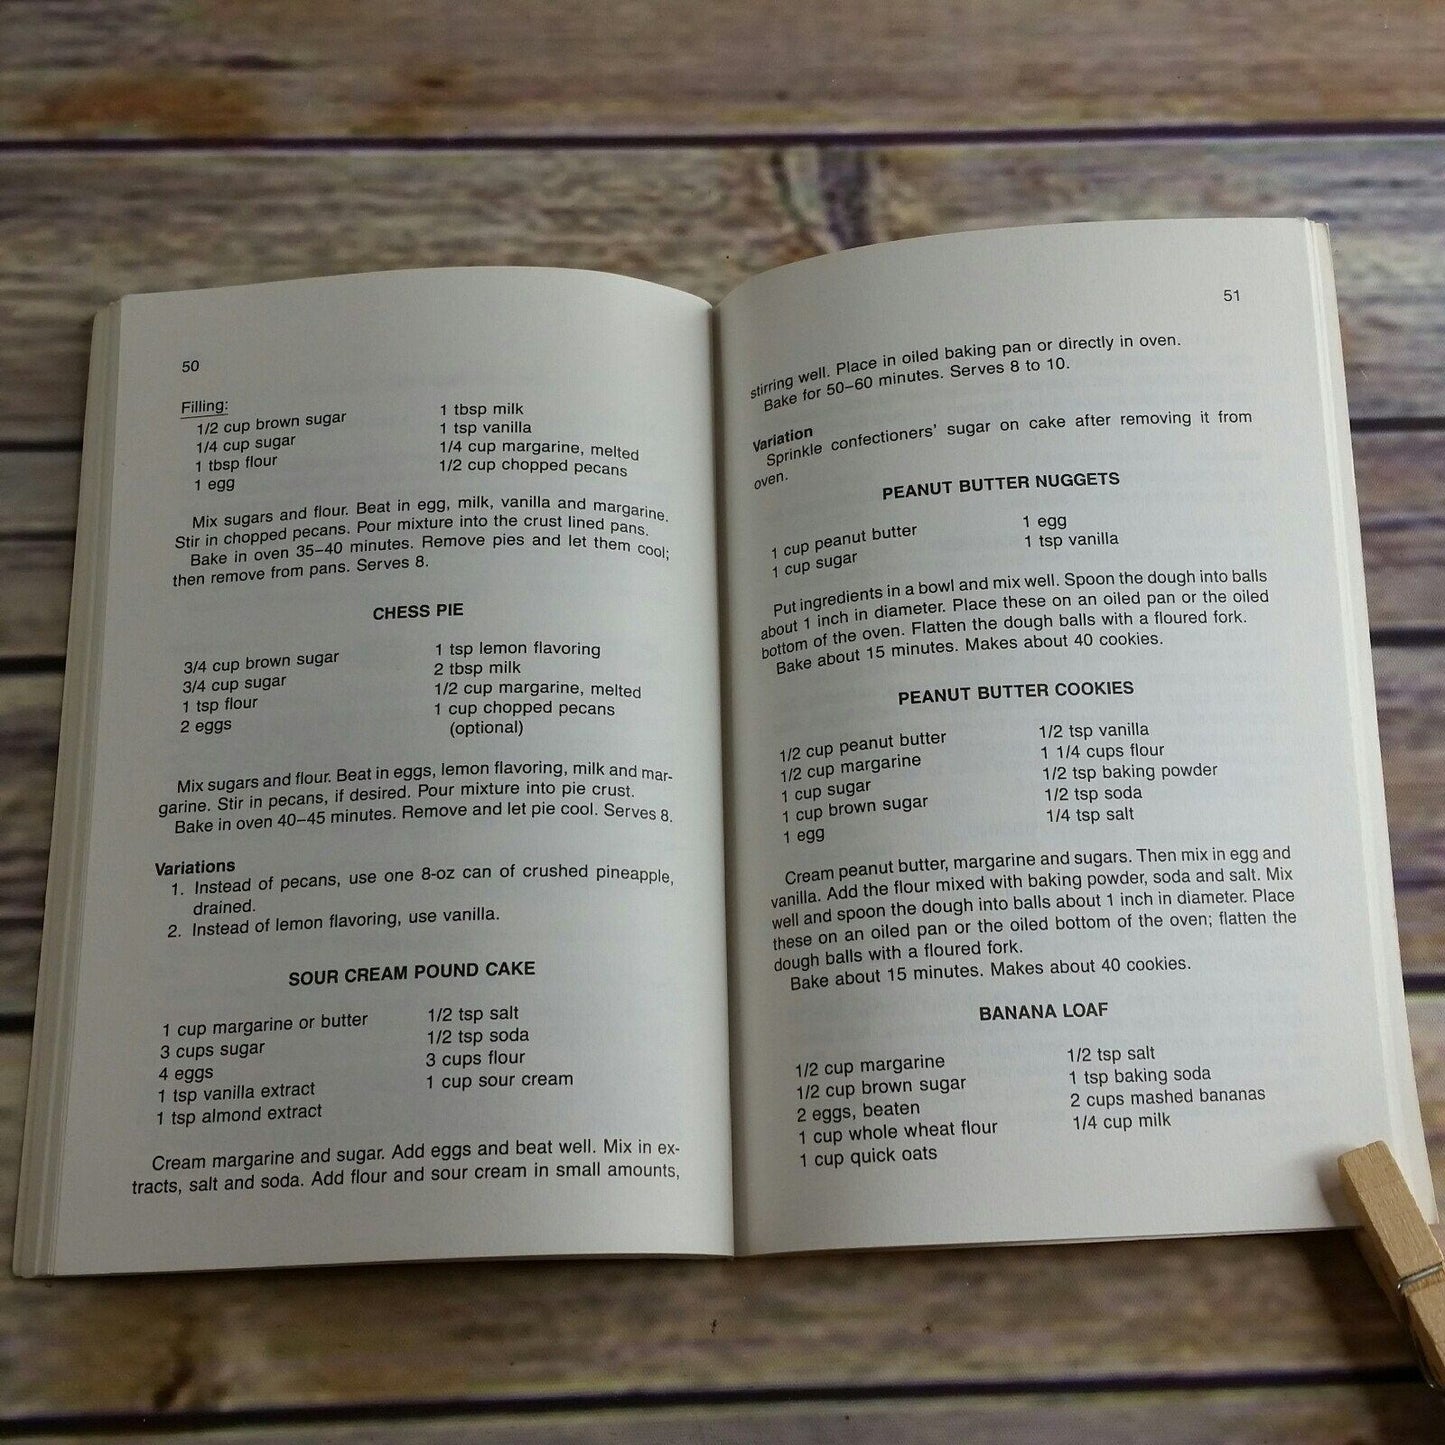 50
Filling:
1/2 cup brown sugar
1/4 cup sugar
1 tbsp flour
1 egg
1 tbsp milk
1 tsp vanilla
1/4 cup margarine, melted
1/2 cup chopped pecans
Mix sugars and flour. Beat in egg, milk, vanilla and margarine.
Stir in chopped pecans. Pour mixture into the crust lined pans.
Bake in oven 35–40 minutes. Remove pies and let them cool;
then remove from pans. Serves 8.
CHESS PIE
3/4 cup brown sugar
3/4 cup sugar
1 tsp flour
2 eggs
1 tsp lemon flavoring
2 tbsp milk
1/2 cup margarine, melted
1 cup chopped pecans
(optional)
Mix sugars and flour. Beat in eggs, lemon flavoring, milk and mar-
garine. Stir in pecans, if desired. Pour mixture into pie crust.
Bake in oven 40–45 minutes. Remove and let pie cool. Serves 8.
Variations
1. Instead of pecans, use one 8-oz can of crushed pineapple,
drained.
2. Instead of lemon flavoring, use vanilla.
SOUR CREAM POUND CAKE
1 cup margarine or butter
3 cups sugar
4 eggs
1 tsp vanilla extract
1 tsp almond extract
1/2 tsp salt
1/2 tsp soda
3 cups flour
1 cup sour cream
Cream margarine and sugar. Add eggs and beat well. Mix in ex-
tracts, salt and soda. Add flour and sour cream in small amounts,
51
stirring well. Place in oiled baking pan or directly in oven.
Bake for 50–60 minutes. Serves 8 to 10.
Variation
Sprinkle confectioners' sugar on cake after removing it from
oven.
PEANUT BUTTER NUGGETS
1 cup peanut butter
1 cup sugar
1 egg
1 tsp vanilla
Put ingredients in a bowl and mix well. Spoon the dough into balls
about 1 inch in diameter. Place these on an oiled pan or the oiled
bottom of the oven. Flatten the dough balls with a floured fork.
Bake about 15 minutes. Makes about 40 cookies.
PEANUT BUTTER COOKIES
1/2 cup peanut butter
1/2 cup margarine
1 cup sugar
1 cup brown sugar
1 egg
1/2 tsp vanilla
1 1/4 cups flour
1/2 tsp baking powder
1/2 tsp soda
1/4 tsp salt
Cream peanut butter, margarine and sugars. Then mix in egg and
vanilla. Add the flour mixed with baking powder, soda and salt. Mix
well and spoon the dough into balls about 1 inch in diameter. Place
these on an oiled pan or the oiled bottom of the oven; flatten the
dough balls with a floured fork.
Bake about 15 minutes. Makes about 40 cookies.
BANANA LOAF
1/2 cup margarine
1/2 cup brown sugar
2 eggs, beaten
1 cup whole wheat flour
1 cup quick oats
1/2 tsp salt
1 tsp baking soda
2 cups mashed bananas
1/4 cup milk